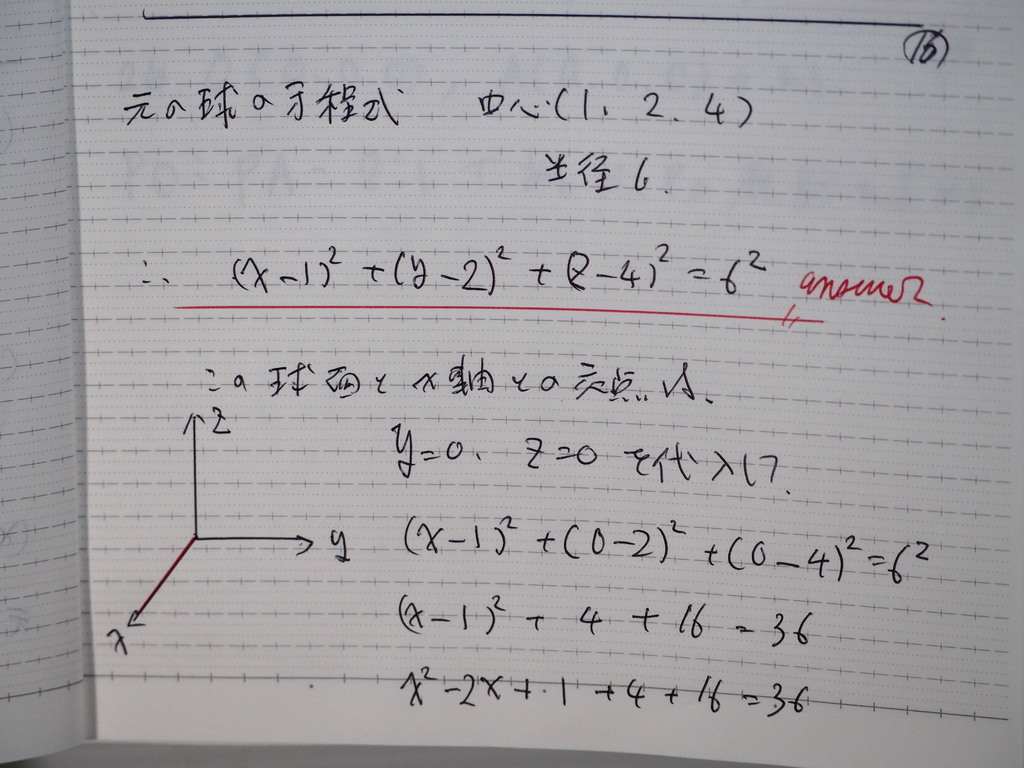 (15)
元の球の方程式 中心(1、2、4)
半径6.
∴ (x-1)² + (y-2)² + (z-4)² = 6² answer.
この球面とx軸との交点は、
z
y=0、z=0を代入して、
y
(x-1)² + (0-2)² + (0-4)² = 6²
(x-1)² + 4 + 16 = 36
x
x² - 2x + 1 + 4 + 16 = 36